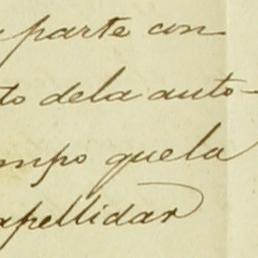 parte con
to dela auto-
mpo quela
apellidar